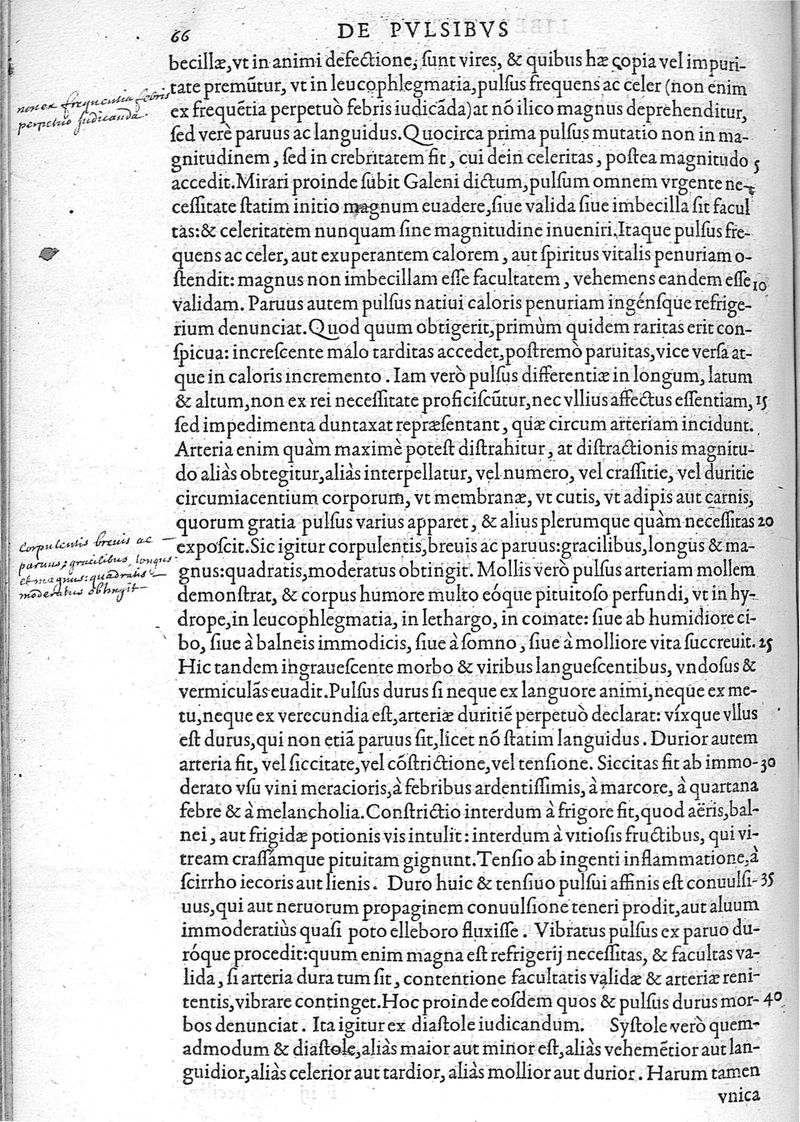 66 DE PVLSIBVS
becillæ, vt in animi defectione, ſunt vires, & quibus hæ copia vel impuri-
tate premũtur, vt in leucophlegmatia, pulſus frequens ac celer (non enim
ex frequẽtia perpetuò febris iudicãda) at nõ ilico magnus deprehenditur,
ſed verè paruus ac languidus. Quocirca prima pulſus mutatio non in ma-
gnitudinem, ſed in crebritatem fit, cui dein celeritas, poſtea magnitudo 5
accedit. Mirari proinde ſubit Galeni dictum, pulſum omnem vrgente ne-
ceſſitate ſtatim initio magnum euadere, ſiue valida ſiue imbecilla ſit facul
tas: & celeritatem nunquam ſine magnitudine inueniri. Itaque pulſus fre-
quens ac celer, aut exuperantem calorem, aut ſpiritus vitalis penuriam o-
ſtendit: magnus non imbecillam eſſe facultatem, vehemens eandem eſſe 10
validam. Paruus autem pulſus natiui caloris penuriam ingénſque refrige-
rium denunciat. Quod quum obtigerit, primùm quidem raritas erit con-
ſpicua: increſcente malo tarditas accedet, poſtremò paruitas, vice verſa at-
que in caloris incremento. Iam verò pulſus differentiæ in longum, latum
& altum, non ex rei neceſſitate proficiſcũtur, nec vllius affectus eſſentiam, 15
ſed impedimenta duntaxat repræſentant, quæ circum arteriam incidunt.
Arteria enim quàm maximè poteſt diſtrahitur, at diſtractionis magnitu-
do aliàs obtegitur, aliàs interpellatur, vel numero, vel craſſitie, vel duritie
circumiacentium corporum, vt membranæ, vt cutis, vt adipis aut carnis,
quorum gratia pulſus varius apparet, & alius plerumque quàm neceſſitas 20
expoſcit. Sic igitur corpulentis, breuis ac paruus: gracilibus, longus & ma-
gnus: quadratis, moderatus obtingit. Mollis verò pulſus arteriam mollem
demonſtrat, & corpus humore multo eóque pituitoſo perfundi, vt in hy-
drope, in leucophlegmatia, in lethargo, in comate: ſiue ab humidiore ci-
bo, ſiue à balneis immodicis, ſiue à ſomno, ſiue à molliore vita ſuccreuit. 25
Hic tandem ingraueſcente morbo & viribus langueſcentibus, vndoſus &
vermiculãs euadit. Pulſus durus ſi neque ex languore animi, neque ex me-
tu, neque ex verecundia eſt, arteriæ duritiẽ perpetuò declarat: víxque vllus
eſt durus, qui non etiã paruus ſit, licet nõ ſtatim languidus. Durior autem
arteria fit, vel ſiccitate, vel cõſtrictione, vel tenſione. Siccitas fit ab immo- 30
derato vſu vini meracioris, à febribus ardentiſſimis, à marcore, à quartana
febre & à melancholia. Conſtrictio interdum à frigore fit, quod aëris, bal-
nei, aut frigidæ potionis vis intulit: interdum à vitioſis fructibus, qui vi-
tream craſſámque pituitam gignunt. Tenſio ab ingenti inflammatione, à
ſcirrho iecoris aut lienis. Duro huic & tenſiuo pulſui affinis eſt conuulſi- 35
uus, qui aut neruorum propaginem conuulſione teneri prodit, aut aluum
immoderatiùs quaſi poto elleboro fluxiſſe. Vibratus pulſus ex paruo du-
róque procedit: quum enim magna eſt refrigerij neceſſitas, & facultas va-
lida, ſi arteria dura tum ſit, contentione facultatis validæ & arteriæ reni-
tentis, vibrare continget. Hoc proinde eoſdem quos & pulſus durus mor- 40
bos denunciat. Ita igitur ex diaſtole iudicandum. Syſtole verò quem-
admodum & diaſtole, aliàs maior aut minor eſt, aliàs vehemẽtior aut lan-
guidior, aliàs celerior aut tardior, aliàs mollior aut durior. Harum tamen
vnica
non ex frequentia febris
perpetuo judicanda.
corpulentis breuis ac
paruus; gracilibus longus
et magnus: quadratis
moderatus obtingit